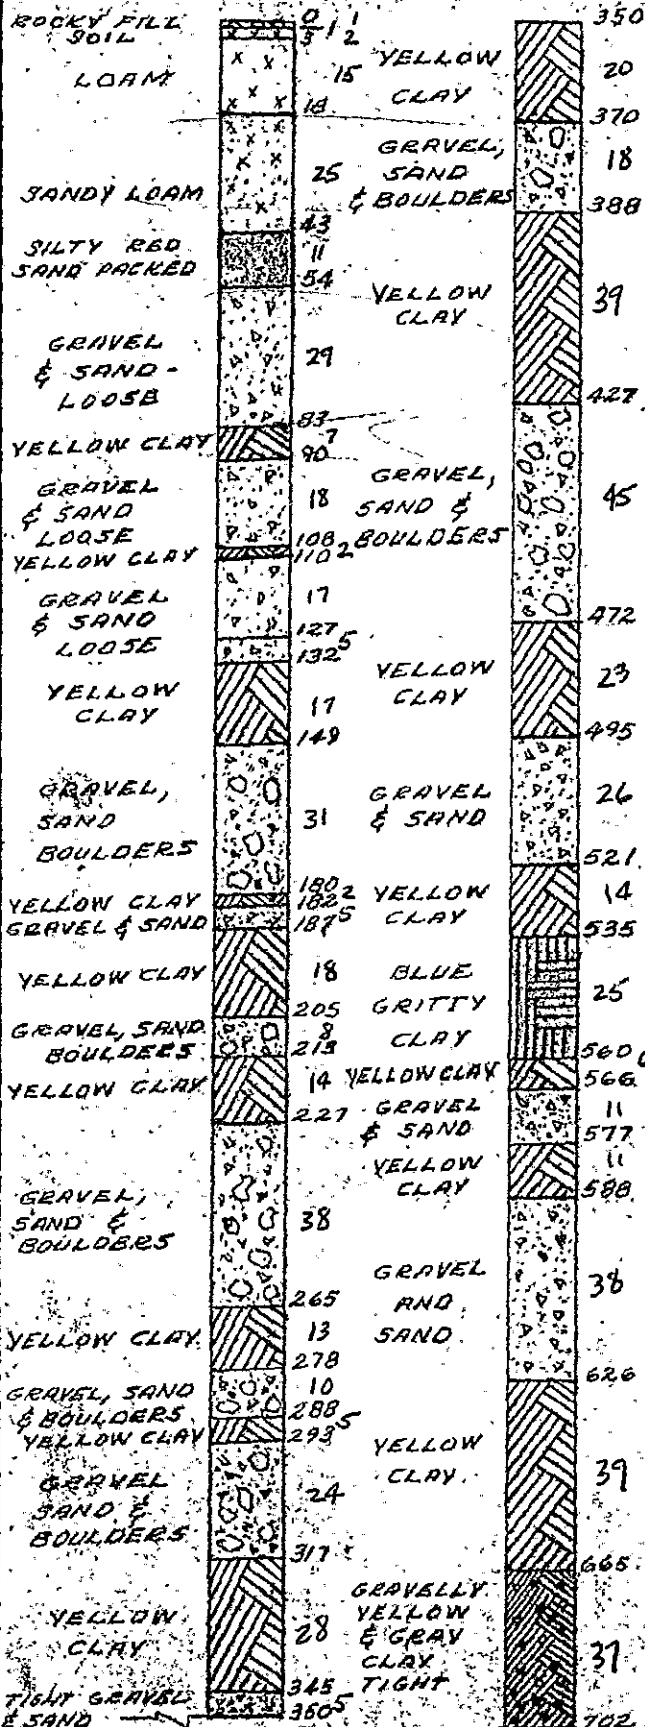 ROCKY FILL
SOIL
0
1
1
3
2
LOAM
15
18
SANDY LOAM
25
43
SILTY RED
SAND PACKED
11
54
GRAVEL
& SAND -
LOOSE
29
83
YELLOW CLAY
7
90
GRAVEL
& SAND
LOOSE
18
108
YELLOW CLAY
110 2
GRAVEL
& SAND
LOOSE
17
127
132 5
YELLOW
CLAY
17
149
GRAVEL,
SAND
BOULDERS
31
180
YELLOW CLAY
182 2
GRAVEL & SAND
187 5
YELLOW CLAY
18
205
GRAVEL, SAND
BOULDERS
8
213
YELLOW CLAY
14
227
GRAVEL,
SAND &
BOULDERS
38
265
YELLOW CLAY
13
278
GRAVEL, SAND
& BOULDERS
10
288
YELLOW CLAY
293 5
GRAVEL
SAND &
BOULDERS
24
317
YELLOW
CLAY
28
345
TIGHT GRAVEL
& SAND
350 5
350
YELLOW
CLAY
20
370
GRAVEL,
SAND
& BOULDERS
18
388
YELLOW
CLAY
39
427
GRAVEL,
SAND &
BOULDERS
45
472
YELLOW
CLAY
23
495
GRAVEL
& SAND
26
521
YELLOW
CLAY
14
535
BLUE
GRITTY
CLAY
25
560
YELLOW CLAY
6
566
GRAVEL
& SAND
11
577
YELLOW
CLAY
11
588
GRAVEL
AND
SAND
38
626
YELLOW
CLAY
39
665
GRAVELLY
YELLOW
& GRAY
CLAY
TIGHT
37
702